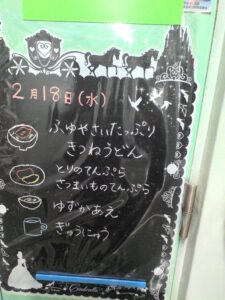 2月18日(水)
ふゆやさいたっぷり
きつねうどん
とりのてんぷら
さつまいものてんぷら
ゆずかあえ
ぎゅうにゅう
Cinderella